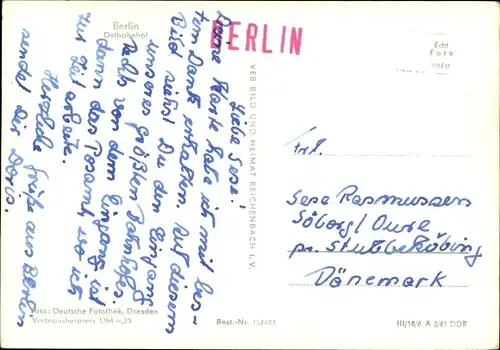 Berlin
Ostbahnhof
BERLIN
Echt
Foto
Liebe Sese!
Deine Karte habe ich mit bes-
tem Dank erhalten. Auf diesem
Bild siehst Du den Eingang
unseres größten Bahnhofes.
rechts von dem Eingang ist
dann das Posamt, wo ich
zur Zeit arbeite.
Herzliche Grüße aus Berlin
sendet Dir Doris.
VEB BILD UND HEIMAT REICHENBACH I. V.
Frl.
Sese Rasmussen
Söborg/ Oure
pr. Stubbeköbing
Dänemark
Foto: Deutsche Fotothek, Dresden
Verbraucherpreis DM –,25
Best.-Nr. 15/523
III/18/6 A 3/61 DDR